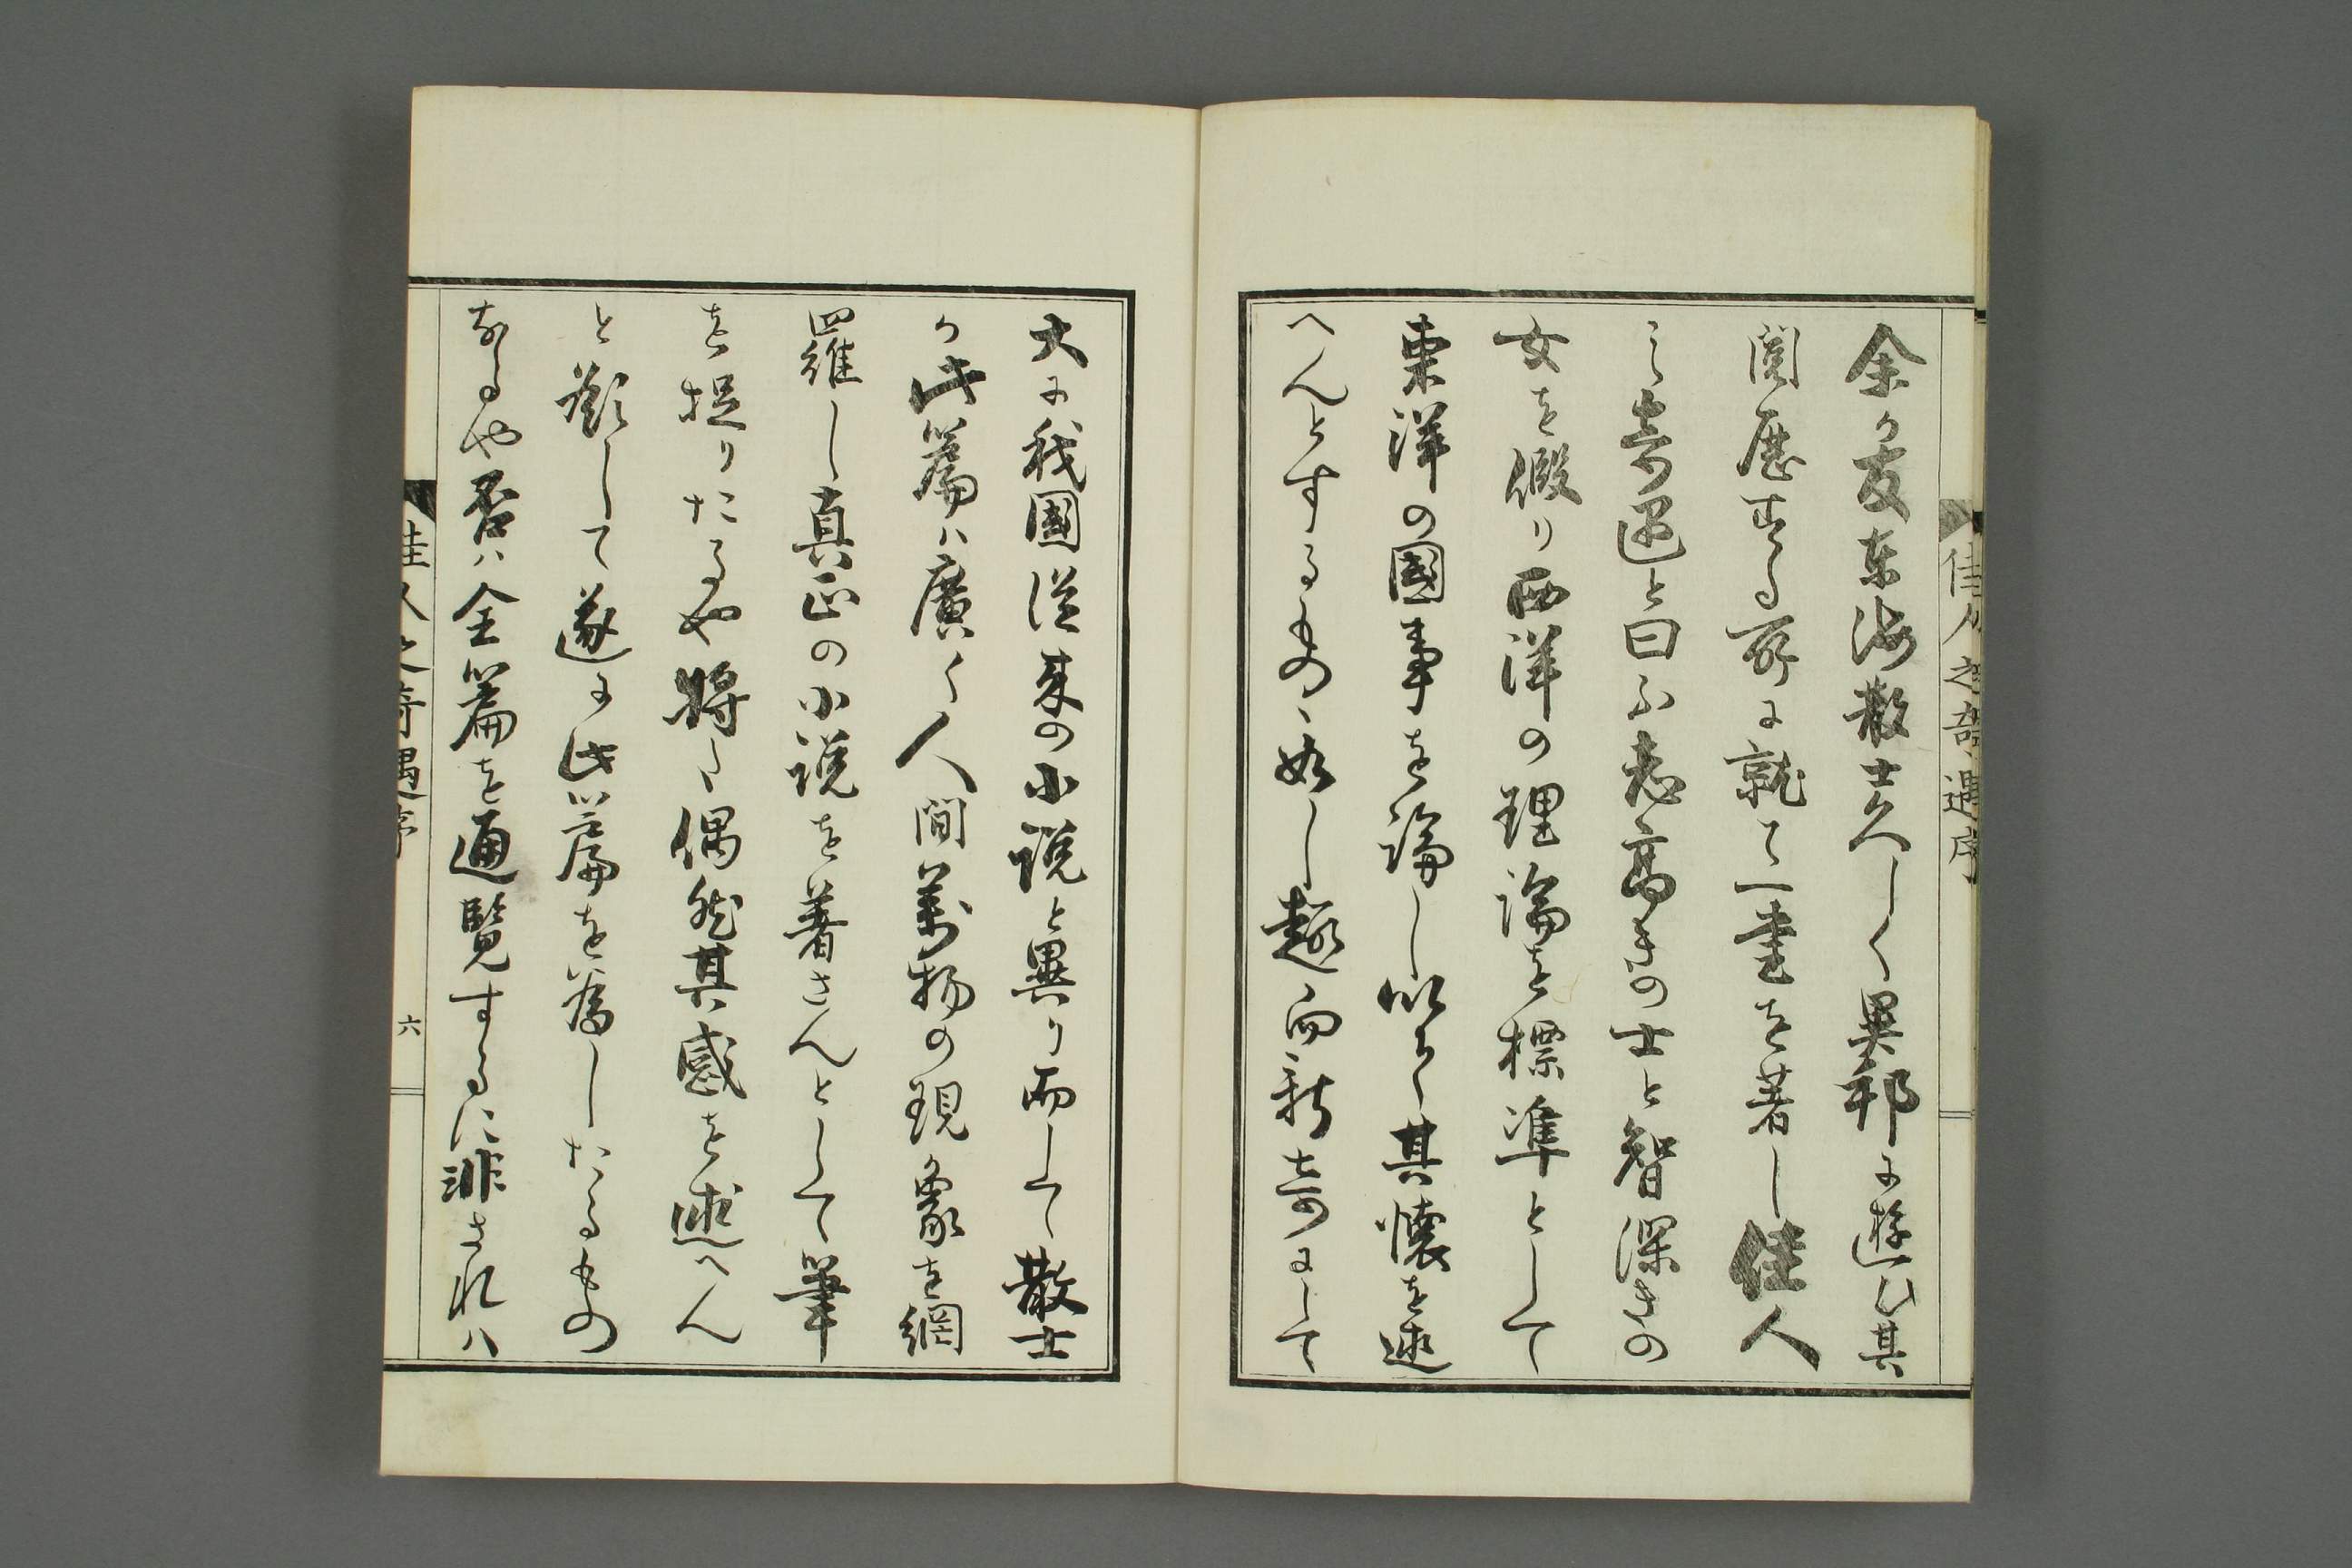 佳人之奇遇序
余か友東海散士久しく異邦に遊ひ其
閲歴する所に就て一書を著し佳人
之奇遇と曰ふ志高きの士と智深きの
女を假り西洋の理論を標準として
東洋の國事を論し以て其懐を述
へんとするものゝ如し趣向新奇にして
大に我国従来の小説と異り而して散士
か此篇ハ廣く人間萬物の現象を網
羅し真正の小説を著さんとして筆
を捉りたるや将た偶然其感を述へん
と欲して遂に此篇を為したるもの
なるや否ハ全篇を通覧するに非されハ
佳人之奇遇序
六